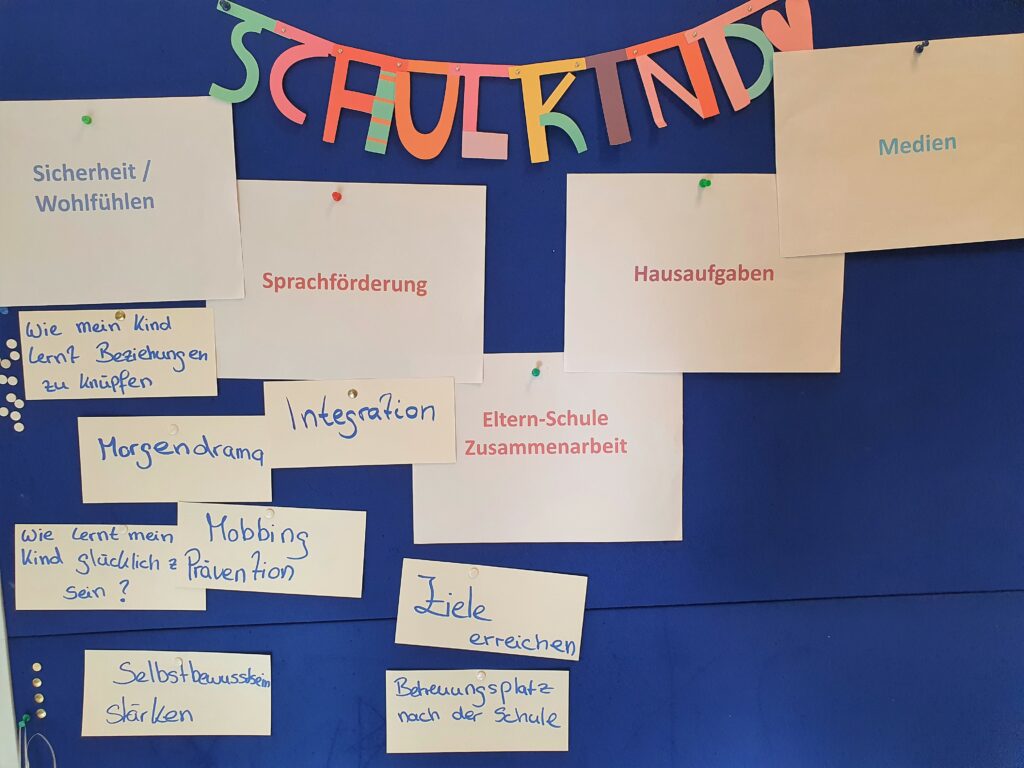 SCHULKIND
Medien
Sicherheit /
Wohlfühlen
Sprachförderung
Hausaufgaben
Wie mein Kind
lernt Beziehungen
zu knüpfen
Integration
Eltern-Schule
Zusammenarbeit
Morgendrama
Wie lernt mein
Kind glücklich z
sein ?
Mobbing
Prävention
Ziele
erreichen
Selbstbewusstsein
stärken
Betreuungsplatz
nach der Schule